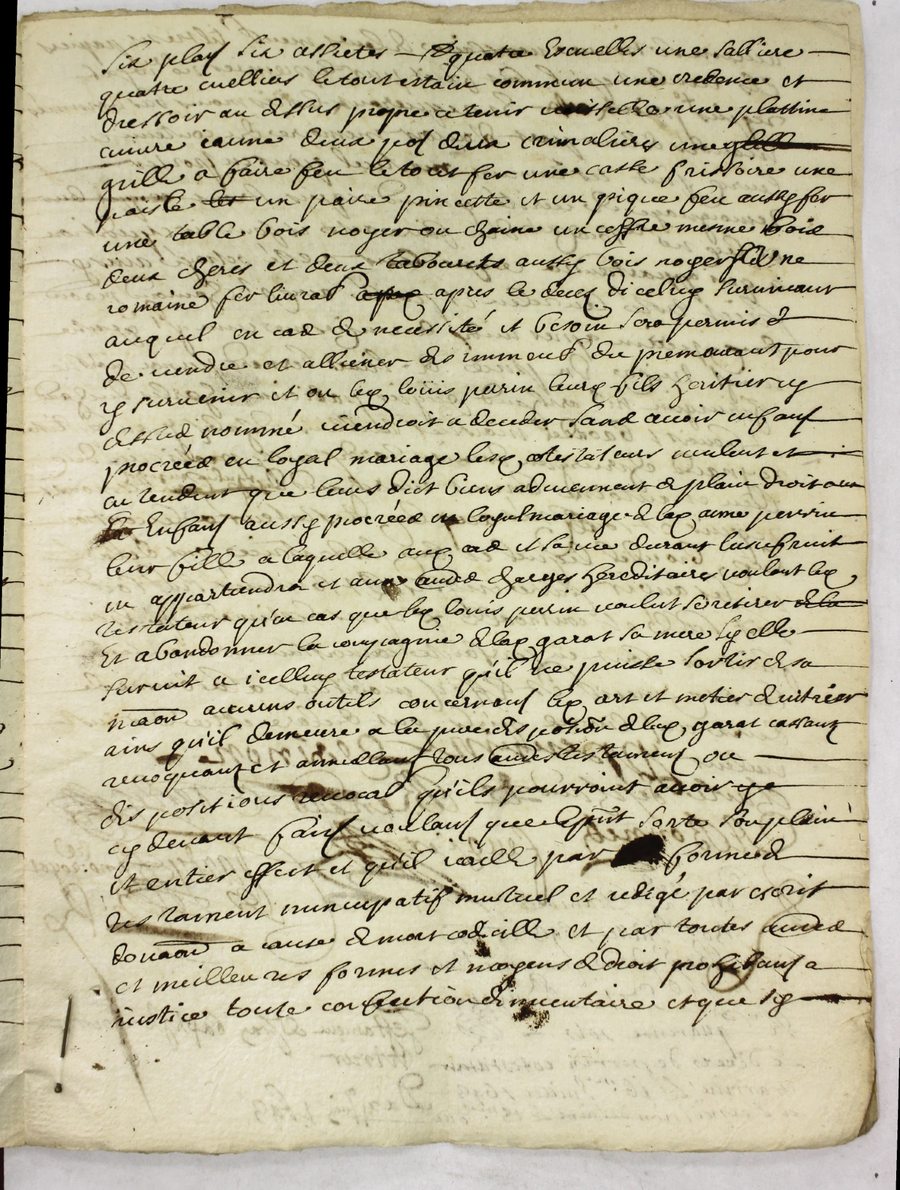 six plas six assietes — quatre Escuelles une salliere —
quatre cuellies le tout estain commun une credence et
dressoir au dessus propre a tenir une plattine
cuivre iaune deux pos deux crimalieres une
grille a faire feu le tout fer une casse frissoire une
un paire pincette et un pique feu aussy fer
une table bois noyer ou chaine un coffre mesme bois
deux cheres et deux tabourets aussy bois noyer une
romaine fer livrab apres le deces dicelluy survivant
auquel en cas de necessité et besoin sera permis
de vendre et alliener des immeub du premourant pour
y survenir et ou led louis perrin leurd fils heritier
dessus nommé viendroit a deceder sans avoir enfans
procrées en loyal mariage lesd testateurs veulent et
entendent que leurs dict biens adviennent de plain droit aux
Enfans aussy procrées en loyal mariage de lad aime perrin
leur fille a laquelle aud cas et sa vie durant lusufruit
en appartiendra et aux charges hereditaires voulant led
testateur qu'en cas que led louis perrin voulut se retirer
Et abandonner la compagnie de lad garat sa mere sy elle
survit a icelluy testateur qu'il ne puisse sortir de sa
maon aucuns outils concernans led art et metier de vitrier
ains qu'il demeure a la pure dispotion de lad garat cassant
revoquant et annullant tous testament ou —
dispositions qu'ils pourroint avoir
cy devant fais voulans que le pnt sorte son plain
et entier effect et qu'il vaille par forme de
testament nuncupatif mutuel et redigé par escrit
donaon a cause de mort codicille et par toutes
et meilleures formes et moyens de droit prohibans a
iustice toute confection dinventaire et que sy